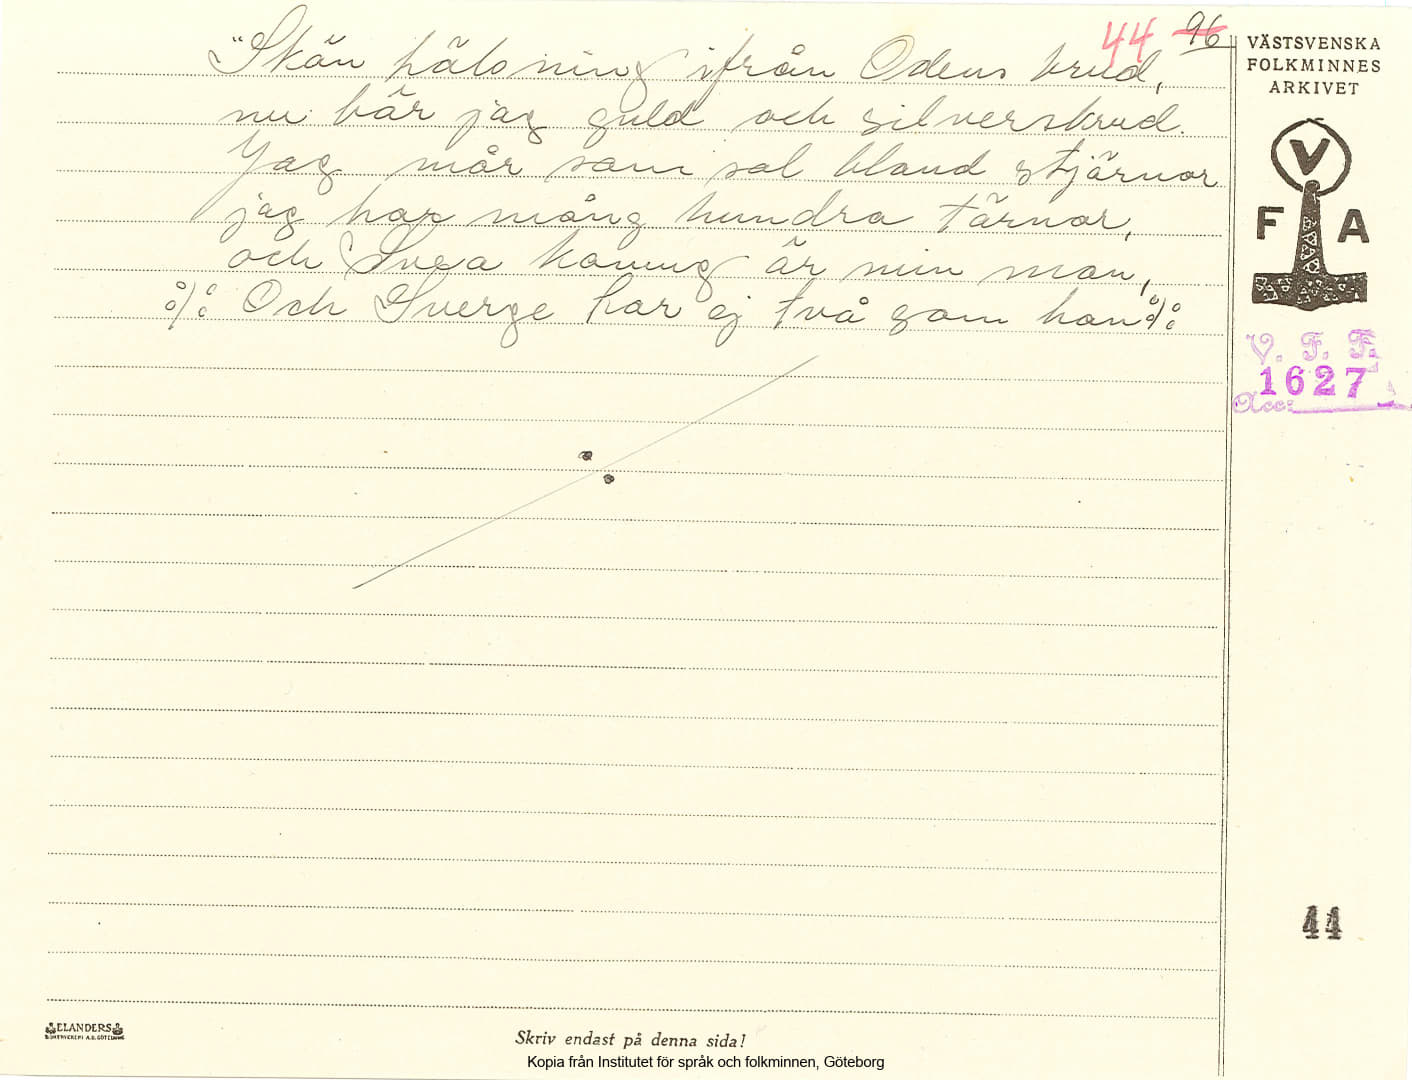 44 96
"Skän hälsning ifrån Odens brud,
nu bär jag guld och silverskrud.
Jag mår som sol bland stjärnor
jag har mång hundra tärnor,
och Svea konung är min man,
:/: Och Sverge har ej två som han :/:
VÄSTSVENSKA
FOLKMINNES
ARKIVET
V
F A
V. F. F.
1627
Acc:
44
ELANDERS
Skriv endast på denna sida!
Kopia från Institutet för språk och folkminnen, Göteborg